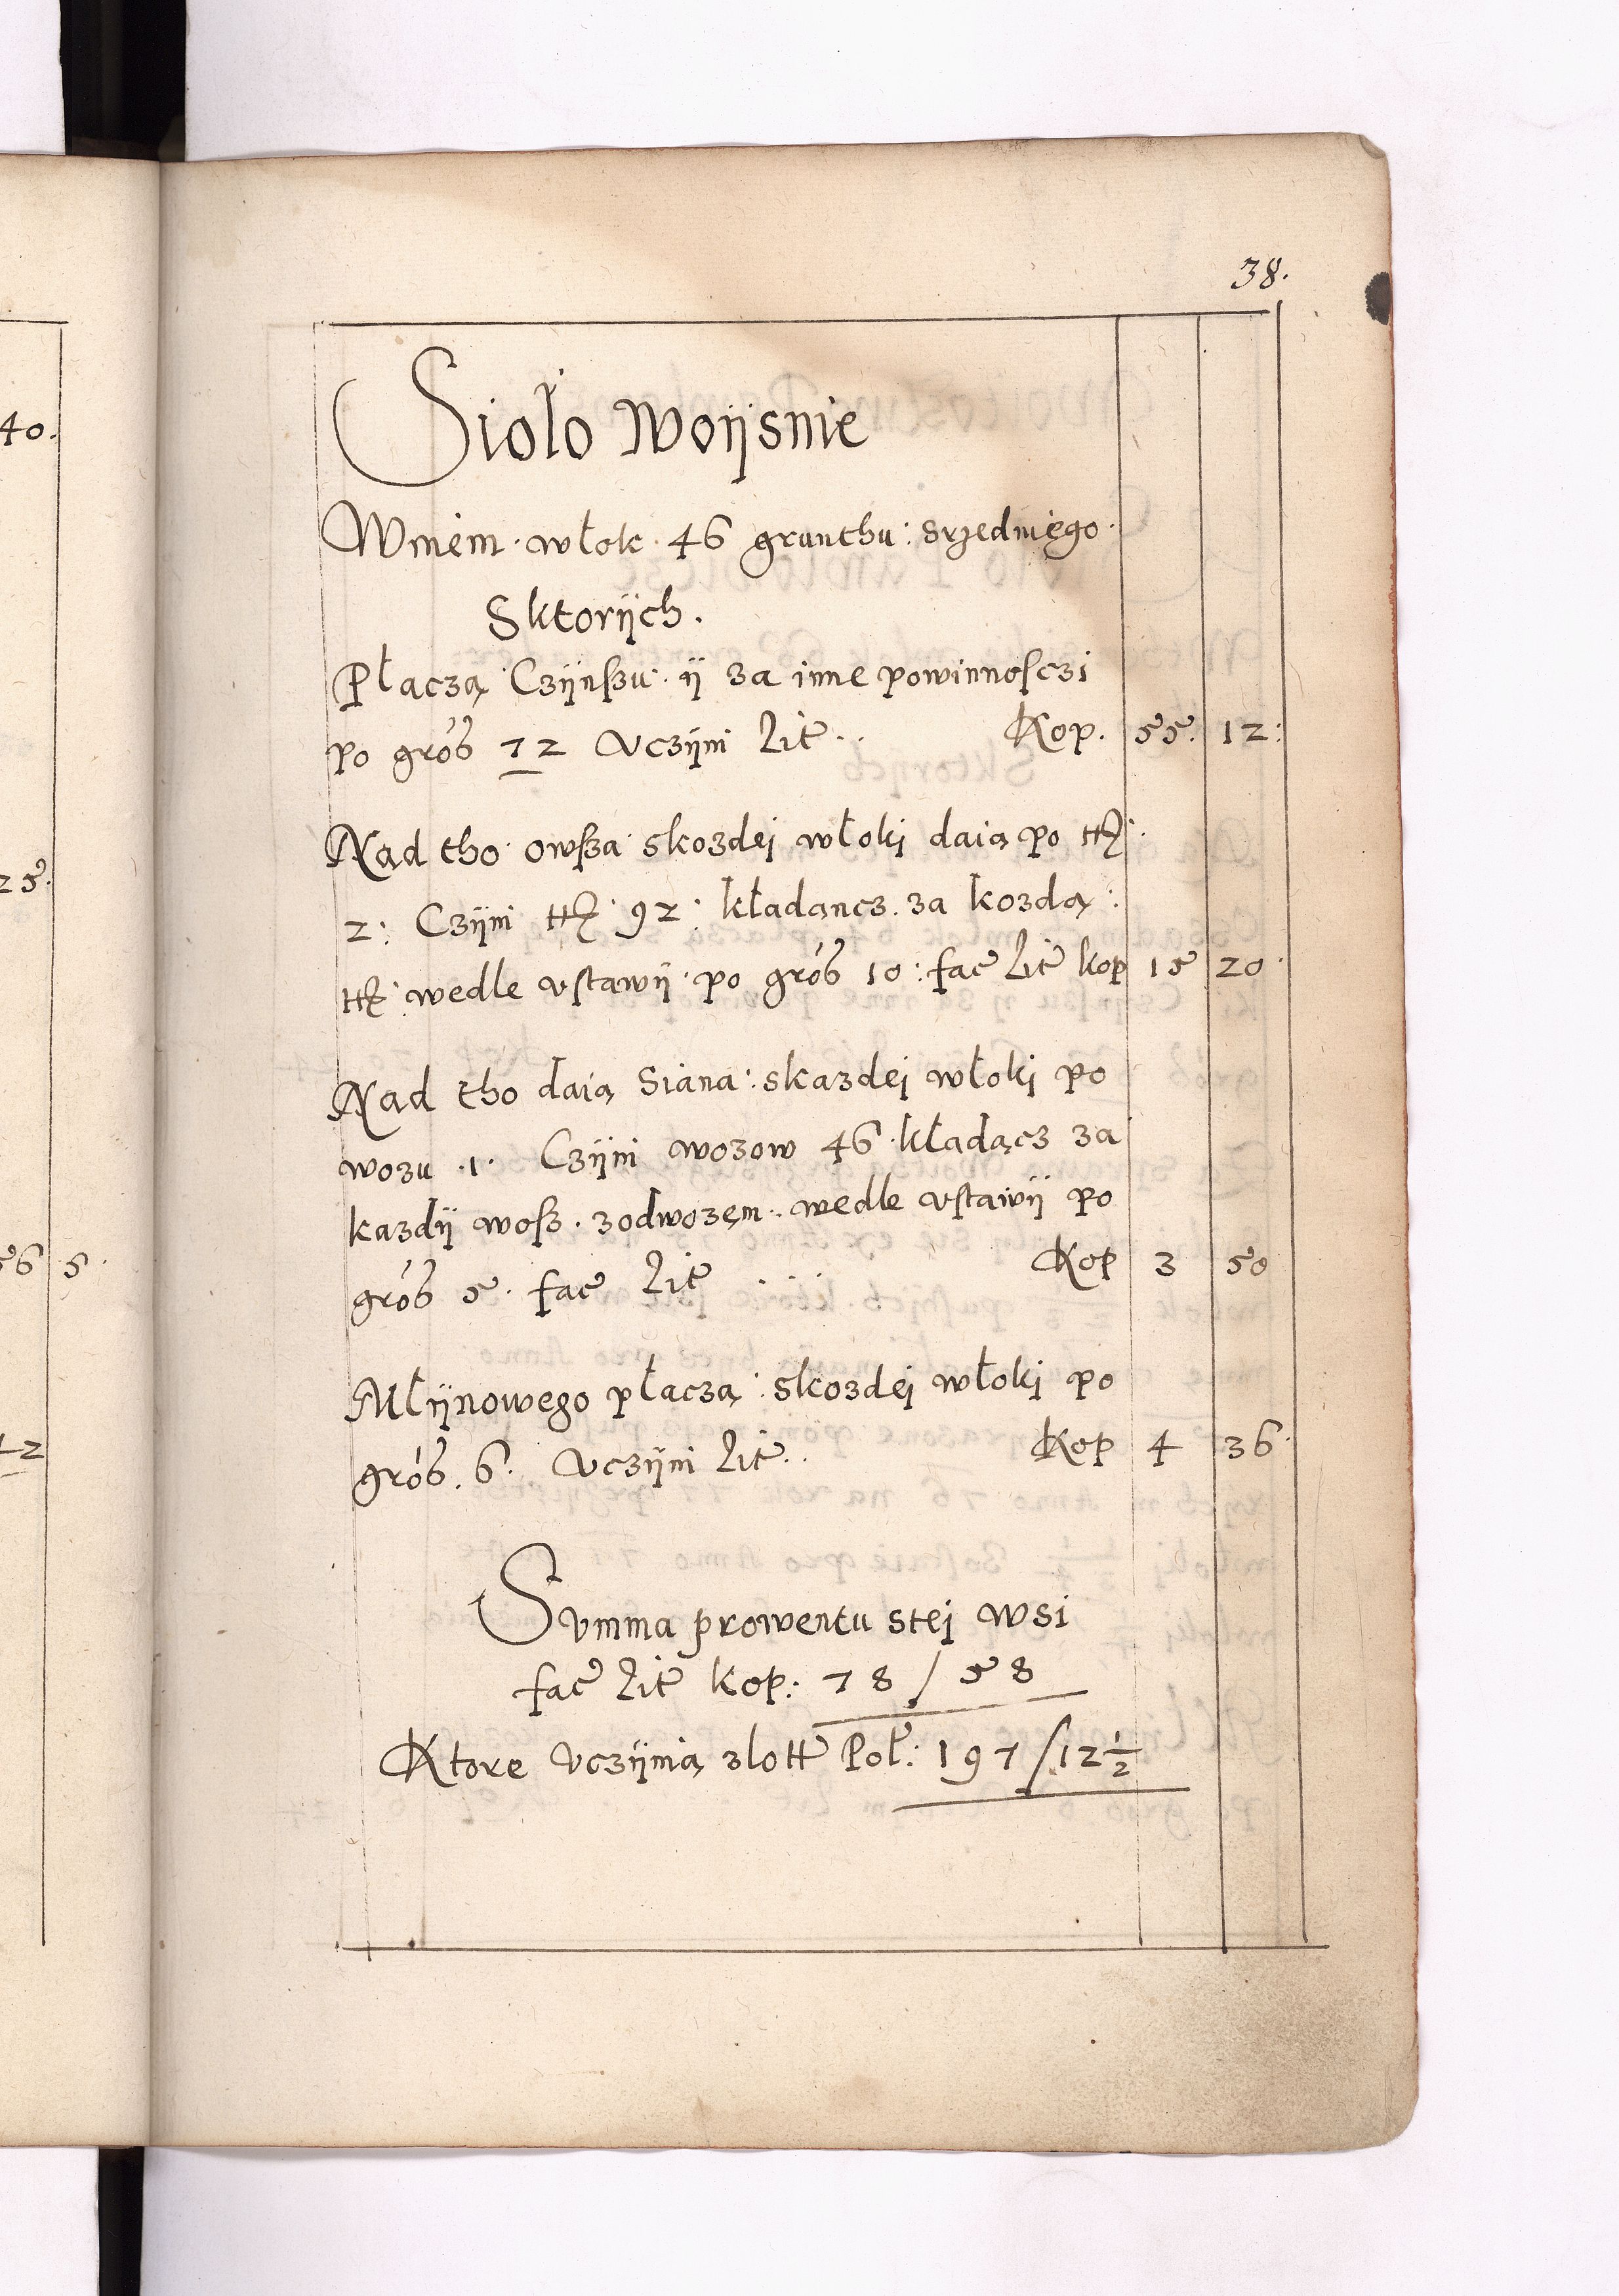 40.
25.
56 | 5.
42
38.
Sioło Woijsnie
Wniem · włok · 46 grunthu: srzedniego·
Sktorijch.
Płaczą Czijnszu · ij za inne powinnosczi
po groß 72 Vczijni Lit̃ .. Kop. | 55. | 12:
Nad tho owsza skozdej włoki daią po ttꝫ
2: Czijni ttꝫ 92: kładąncz za kozdą:
ttꝫ wedle vstawij po groß 10: fac̃ Lit̃ kop | 15 | 20
Nad tho daią Siana: skazdej włoki po
wozu ·1· Czijni wozow 46 kładącz za
kazdij wosz · zodwozem · wedle vstawij po
groß 5. fac̃ Lit̃ .... Kop | 3 | 50
Młijnowego płaczą: skozdej włoki po
groß. 6. Vczijni Lit̃ .. Kop | 4 | 36
Svmma prowentu stej wsi
fac̃ Lit̃ kop: 78 / 58
Ktore Vczijnią złott̃ Poł: 197 / 12½